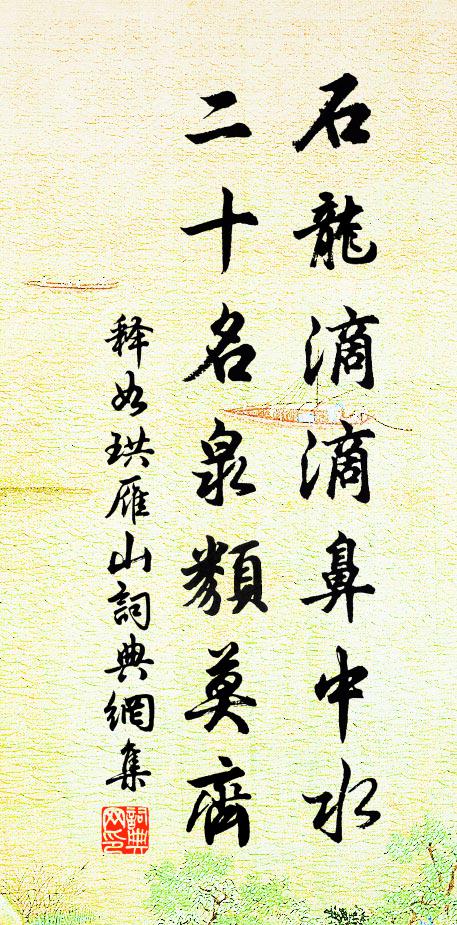 石龍滴滴鼻中水
二十名泉類莫齊
释如珙雁山詞典網集
詞典網印